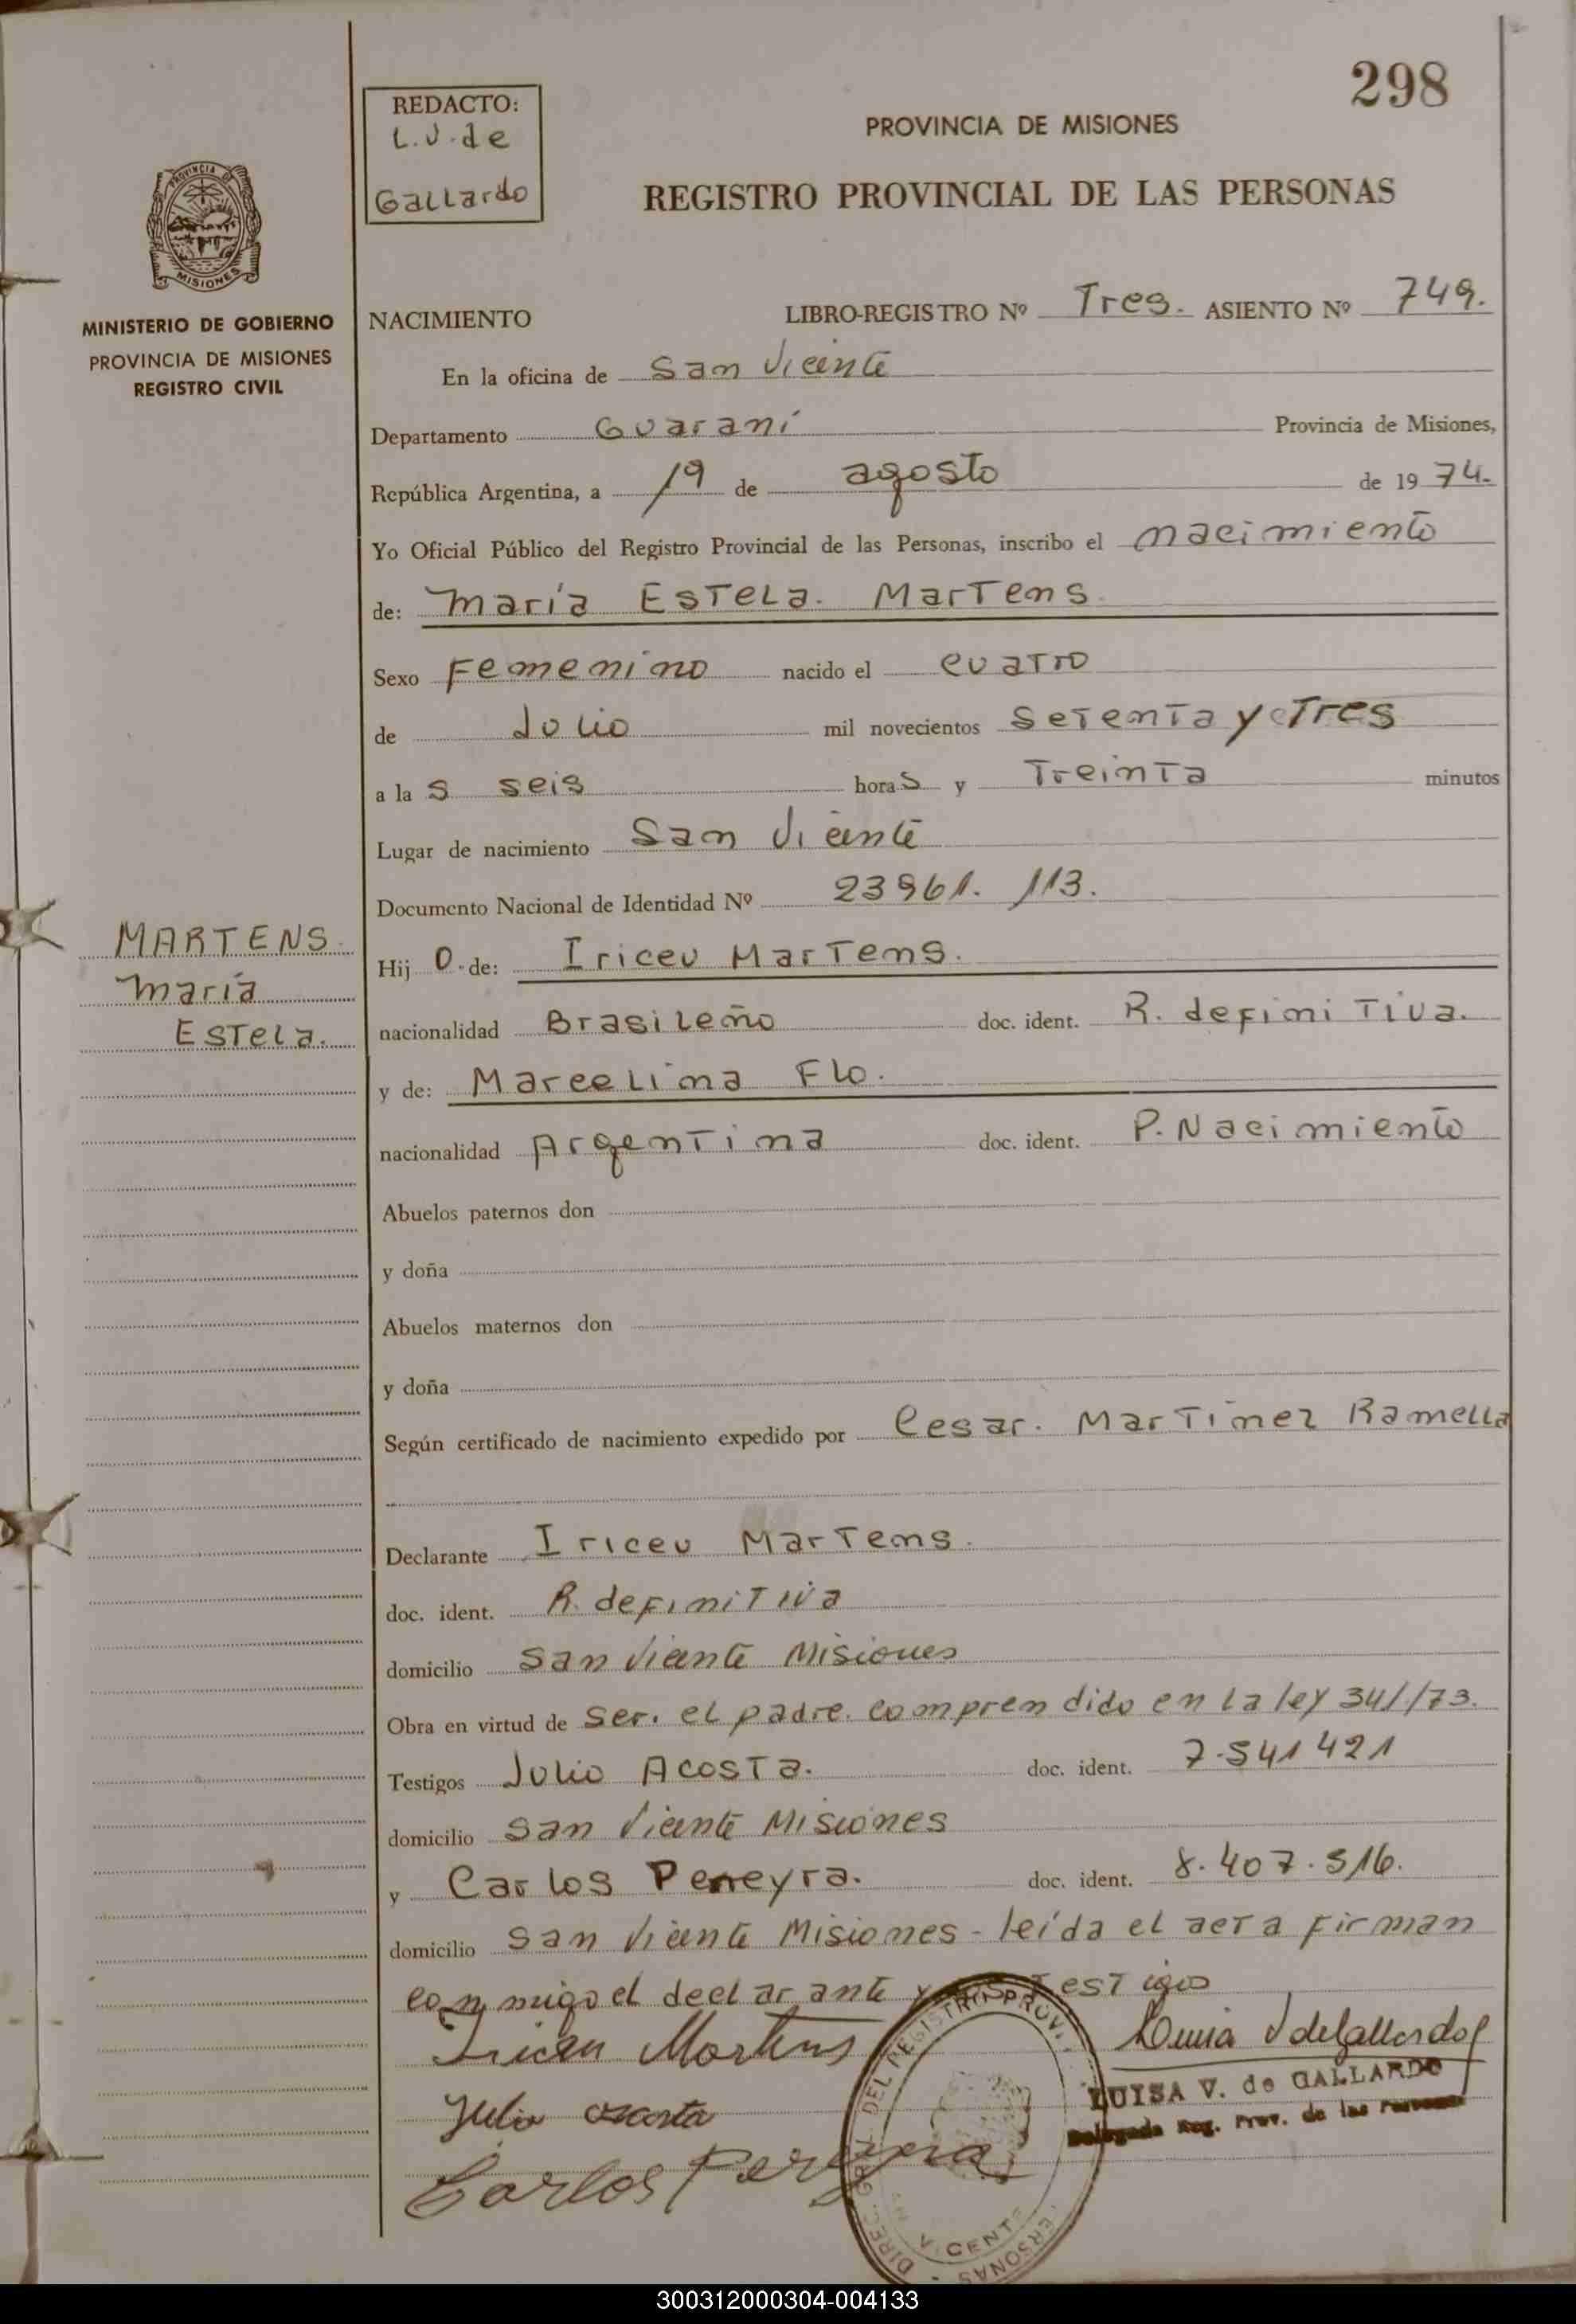 298
REDACTO:
L.V. de
Gallardo
PROVINCIA DE MISIONES
REGISTRO PROVINCIAL DE LAS PERSONAS
PROVINCIA DE
MISIONES
MINISTERIO DE GOBIERNO
PROVINCIA DE MISIONES
REGISTRO CIVIL
NACIMIENTO LIBRO-REGISTRO Nº Tres. ASIENTO Nº 749.
En la oficina de San Vicente
Departamento Guaraní Provincia de Misiones,
República Argentina, a 19 de agosto de 1974.
Yo Oficial Público del Registro Provincial de las Personas, inscribo el nacimiento
de: María Estela. Martens
Sexo Femenino nacido el cuatro
de Julio mil novecientos setenta y tres
a las seis horas y Treinta minutos
Lugar de nacimiento San Vicente
Documento Nacional de Identidad Nº 23961. 113.
MARTENS
María
Estela.
Hijo. de: Iriceu Martens.
nacionalidad Brasileño doc. ident. R. definitiva.
y de: Marcelina Flo.
nacionalidad Argentina doc. ident. P. Nacimiento
Abuelos paternos don
y doña
Abuelos maternos don
y doña
Según certificado de nacimiento expedido por Cesar. Martinez Ramella
Declarante Iriceu Martens.
doc. ident. R. definitiva
domicilio San Vicente Misiones
Obra en virtud de ser. el padre. comprendido en la ley 341/73.
Testigos Julio Acosta. doc. ident. 7.541421
domicilio San Vicente Misiones
y Carlos Pereyra. doc. ident. 8.407.516.
domicilio San Vicente Misiones - leída el acta firman
conmigo el declarante y los testigos
Iriceu Martens
Luisa V de Gallardo
LUISA V. de GALLARDO
Delegada Reg. Prov. de las Personas
Julio acosta
Carlos Pereyra
DIREC. GRAL. DEL REGISTRO PROV.
PERSONAS
VICENTE
300312000304-004133